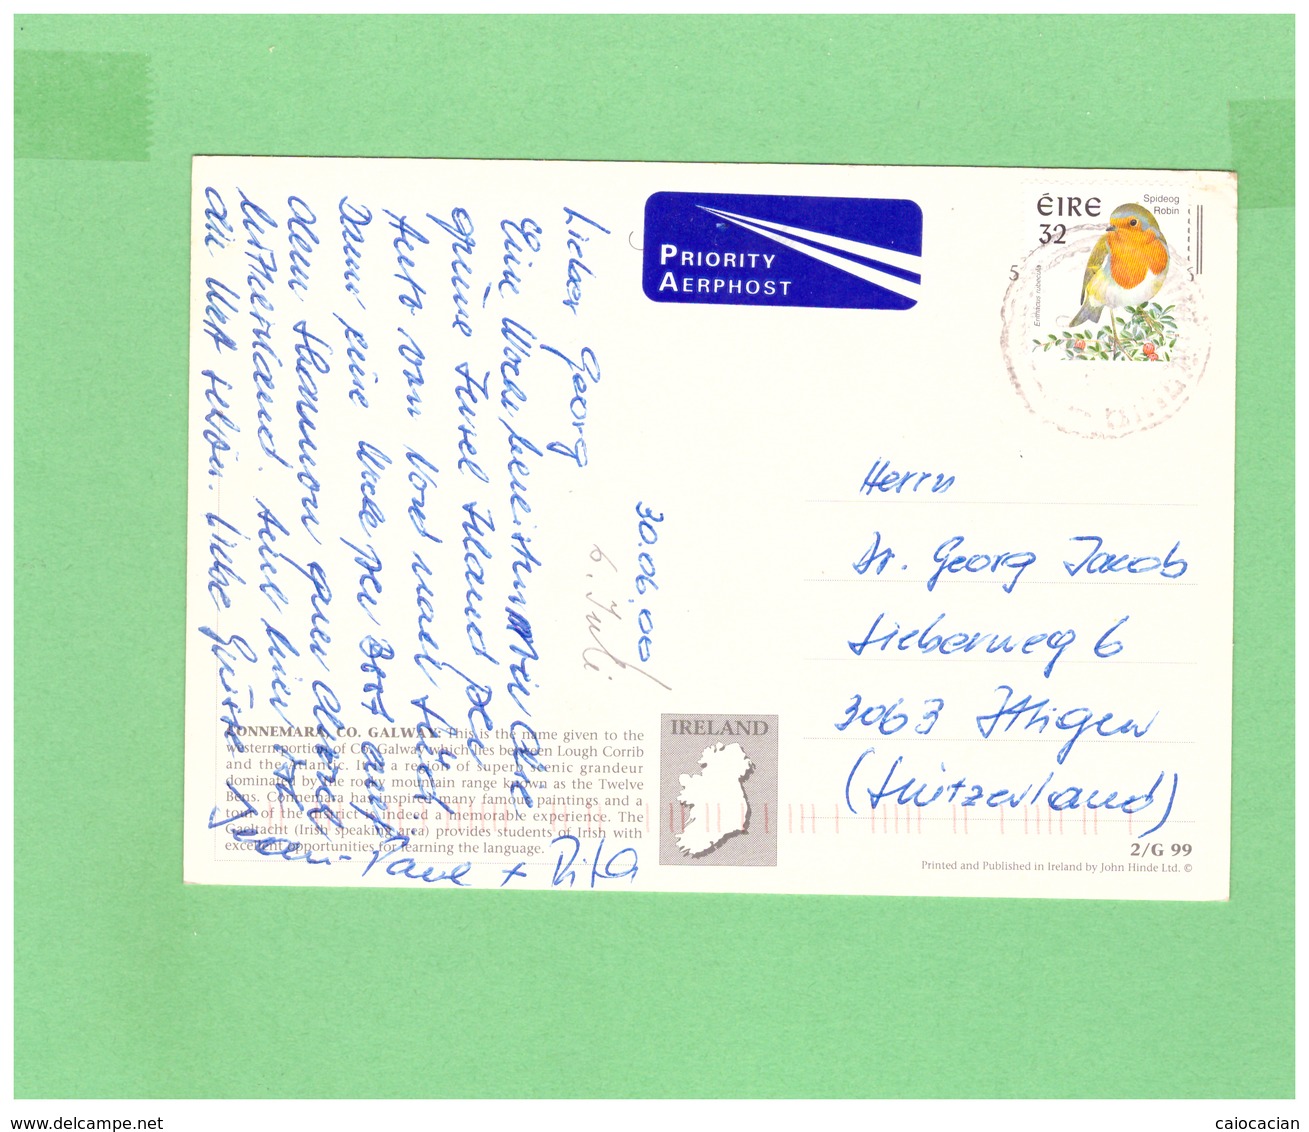 PRIORITY
AERPHOST
ÉIRE
32
Spideog
Robin
Erithacus rubecula
30.06.00
6. Juli
Lieber Georg
Eine Woche bereisten wir die
grüne Insel Irland per
Auto von Nord nach Süd.
Dann eine Woche per Boot auf
dem Shannon quer durchs
hier
die Welt schön. Liebe Grüsse
Paul + Rita
Herrn
Dr. Georg Jacob
6
3063 Ittigen
(Switzerland)
CONNEMARA, CO. GALWAY: This is the name given to the
western portion of Co. Galway which lies between Lough Corrib
and the Atlantic. It is a region of superb scenic grandeur
dominated by the rocky mountain range known as the Twelve
Bens. Connemara has inspired many famous paintings and a
tour of the district is indeed a memorable experience. The
Gaeltacht (Irish speaking area) provides students of Irish with
excellent opportunities for learning the language.
IRELAND
2/G 99
Printed and Published in Ireland by John Hinde Ltd. ©
www.delcampe.net
caiocacian